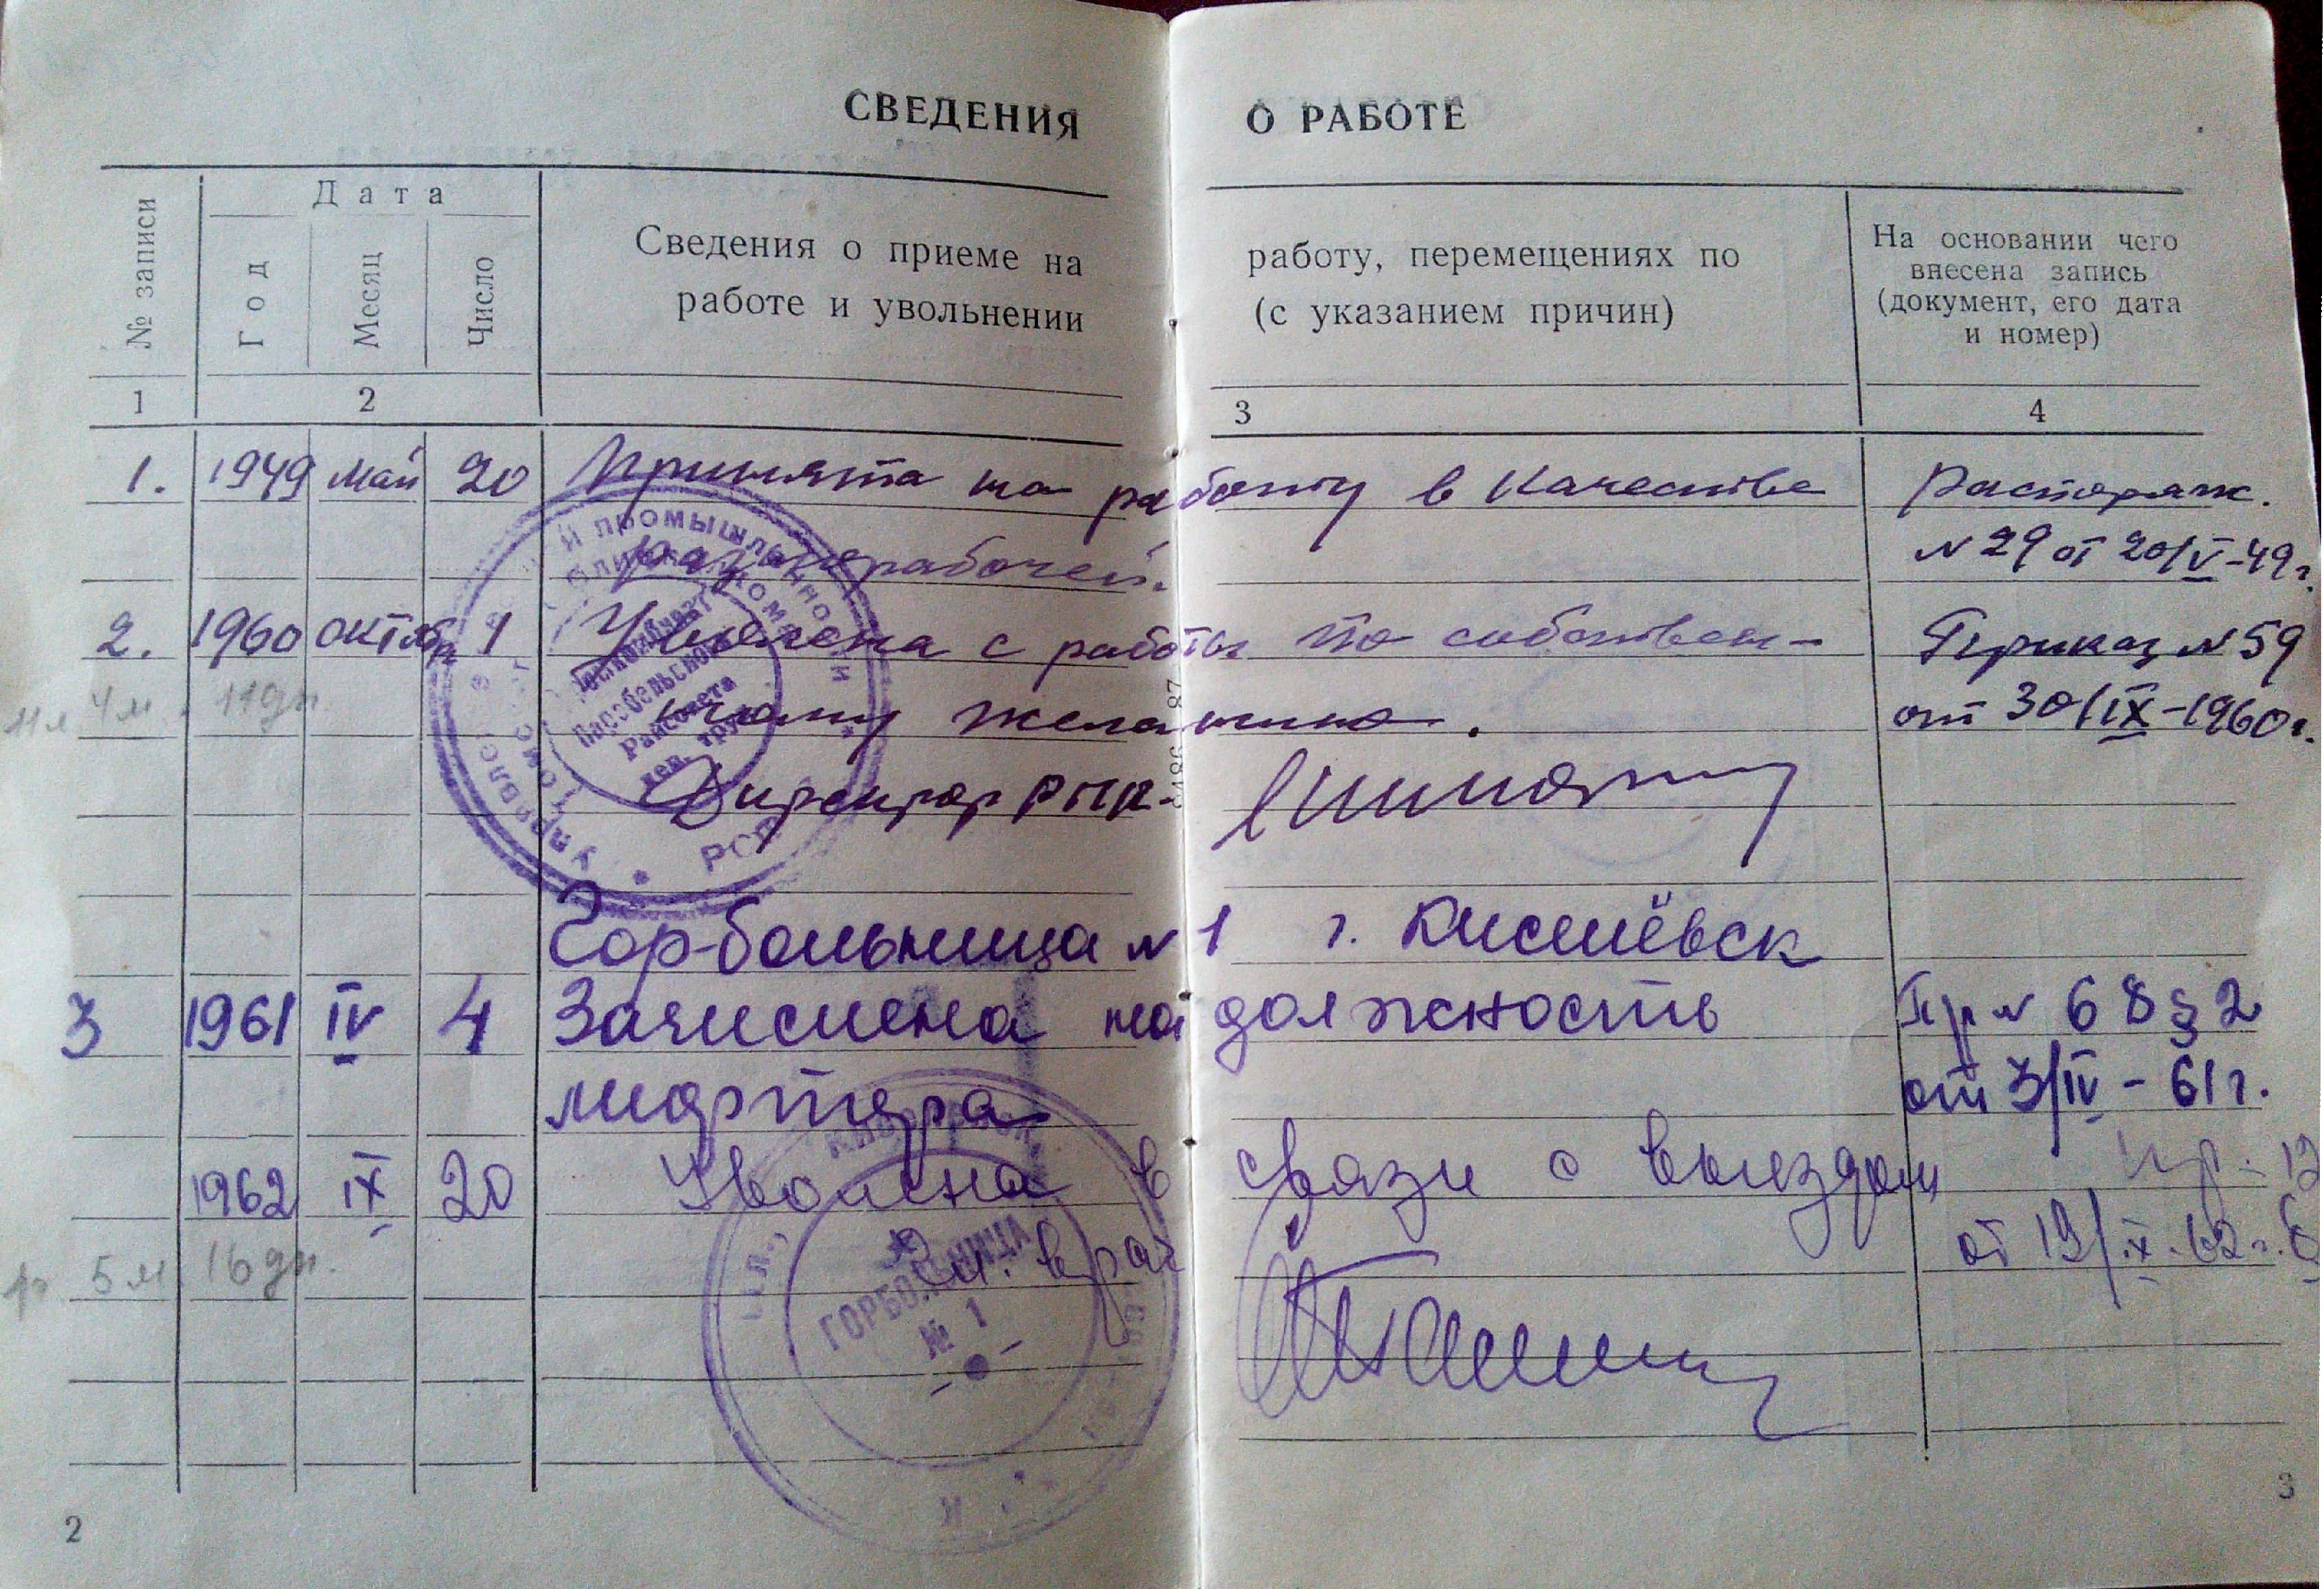 СВЕДЕНИЯ О РАБОТЕ
№ записи
Дата
Год
Месяц
Число
Сведения о приеме на работу, перемещениях по
работе и увольнении (с указанием причин)
На основании чего
внесена запись
(документ, его дата
и номер)
1 2 3 4
1. 1949 май 20 Принята на работу в качестве Распоряж.
разнорабочей. № 29 от 20/V-49г
2. 1960 октяб 1 Уволена с работы по собствен- Приказ № 59
11л 4м. 11дн. ному желанию. от 30/IX-1960г.
Директор РПК-
Горбольница № 1 г. Киселёвск
3 1961 IV 4 Зачислена на должность Пр № 68 § 2
лифтера от 3/IV-61г.
1962 IX 20 Уволена в связи с выездом пр.
Гл. врач от 19/IX.62г.
1г 5м 16дн.
Й ПРОМЫШЛЕННОСТИ
Парабельского
Райсовета
деп. труд
РСФ
ГОРБОЛЬНИЦА
№ 1
2
3